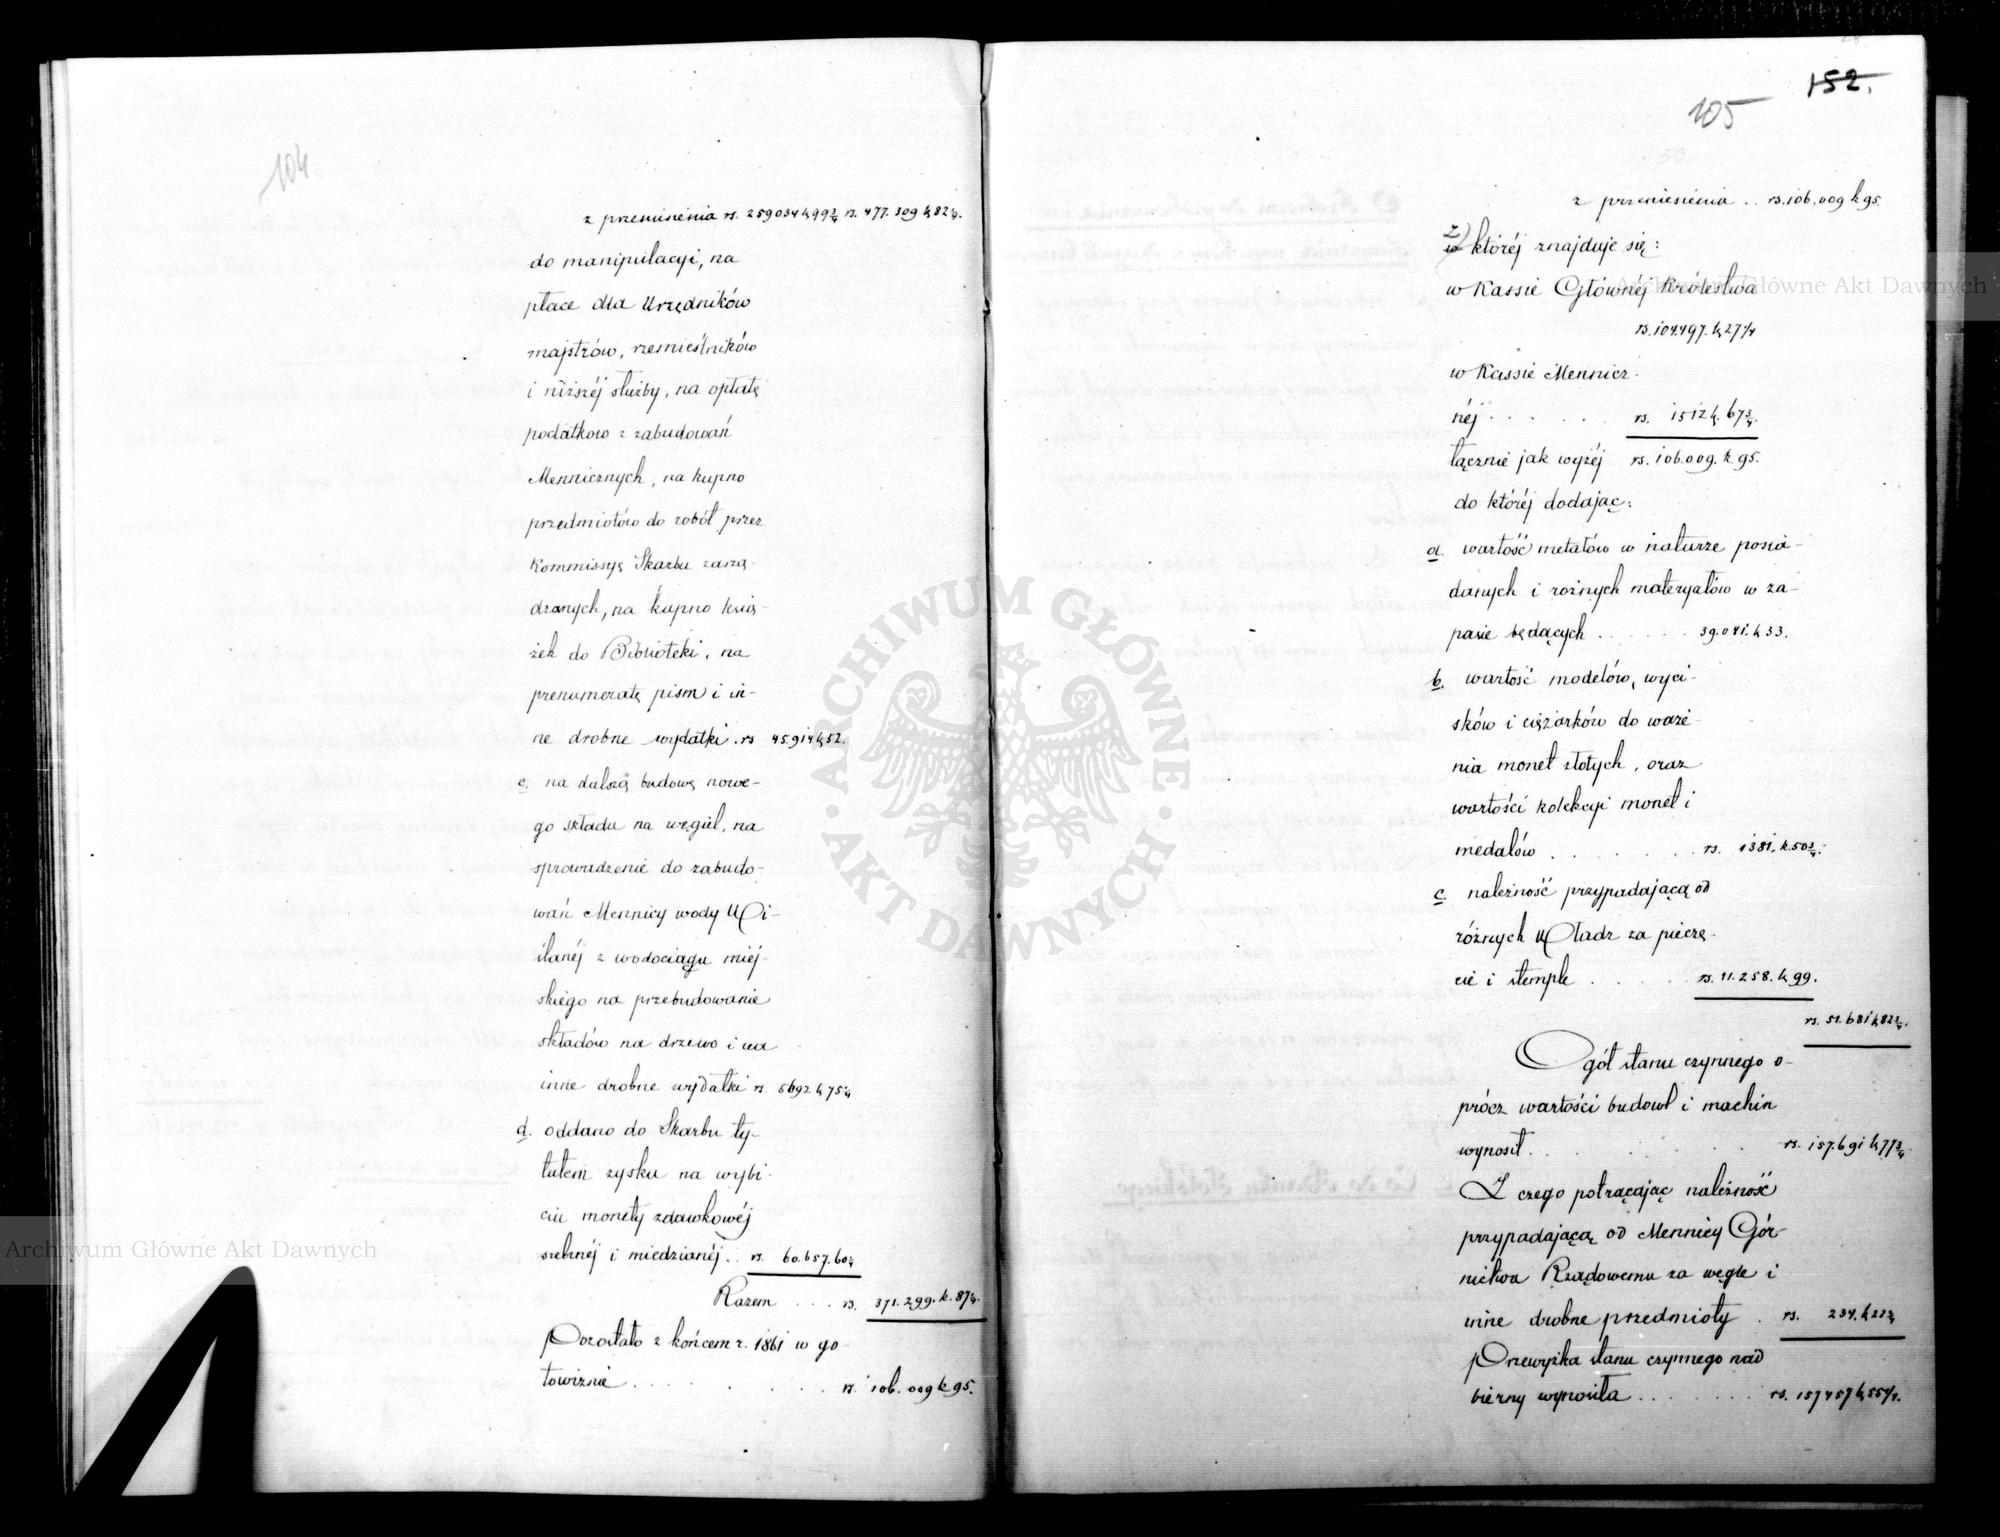 104
z przeniesienia rs. 259034 k 99 3/4 rs. 477.309 k 82 1/4.
do manipulacyi, na
płace dla Urzędników
majstrów, rzemieślników
i niższéj służby, na opłatę
podatkow z zabudowań
Mennicznych, na kupno
przedmiotów do robót przez
Kommissyę Skarbu zarzą-
dzonych, na kupno ksią-
żek do Biblioteki, na
prenumeratę pism i in-
ne drobne wydatki . rs 45.914 k 52.
c. na dalszą budowę nowe-
go składu na węgiel, na
sprowadzenie do zabudo-
wań Mennicy wody Wi-
ślanéj z wodociągu miéj-
skiego na przebudowanie
składów na drzewo i na
inne drobne wydatki rs 5692 k 75 1/4
d. oddano do Skarbu ty-
tułem zysku na wybi-
ciu monety zdawkowéj
srebrnéj i miedzianéj .. rs. 60.657. 60 1/4
Razem . . . rs. 371.299. k. 87 1/4.
Pozostało z końcem r. 1861 w go-
towiznie . . . . . . rs. 106.009 k 95.
152.
105
z przeniesienia .. rs. 106.009 k 95.
z) w któréj znajduje się:
w Kassie Głównéj Królestwa
rs. 104.497. k 27 1/4
w Kassie Mennicz-
néj . . . . . rs. 1512 k. 67 3/4.
łącznie jak wyżéj rs. 106.009. k 95.
do któréj dodając:
a. wartość metalów w naturze posia-
danych i rożnych materyałów w za-
pasie będących . . . . . 39.041. k 33.
b. wartość modelów, wyci-
sków i ciężarków do waże-
nia monet złotych, oraz
wartości kolekcyi monet i
medalów . . . . . . rs. 1381. k. 50 3/4.
c. należność przypadającą od
różnych Władz za pieczę-
cie i stemple . . . . . rs. 11.258. k 99.
rs. 51.681 k 82 3/4.
Ogół stanu czynnego o-
prócz wartości budowl i machin
wynosił . . . . . . . rs. 157.691 k 77 3/4
Z czego potrącając należność
przypadającą od Mennicy Gór-
nictwu Rządowemu za węgle i
inne drobne przedmioty . rs. 234. k 22 2/4
Przewyżka stanu czynnego nad
bierny wynosiła . . . . . rs. 157457 k 55 1/4.
Archiwum Główne Akt Dawnych
Archiwum Główne Akt Dawnych
ARCHIWUM GŁÓWNE
AKT DAWNYCH